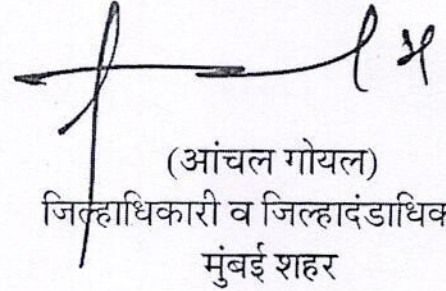 (आंचल गोयल)
जिल्हाधिकारी व जिल्हादंडाधिक
मुंबई शहर